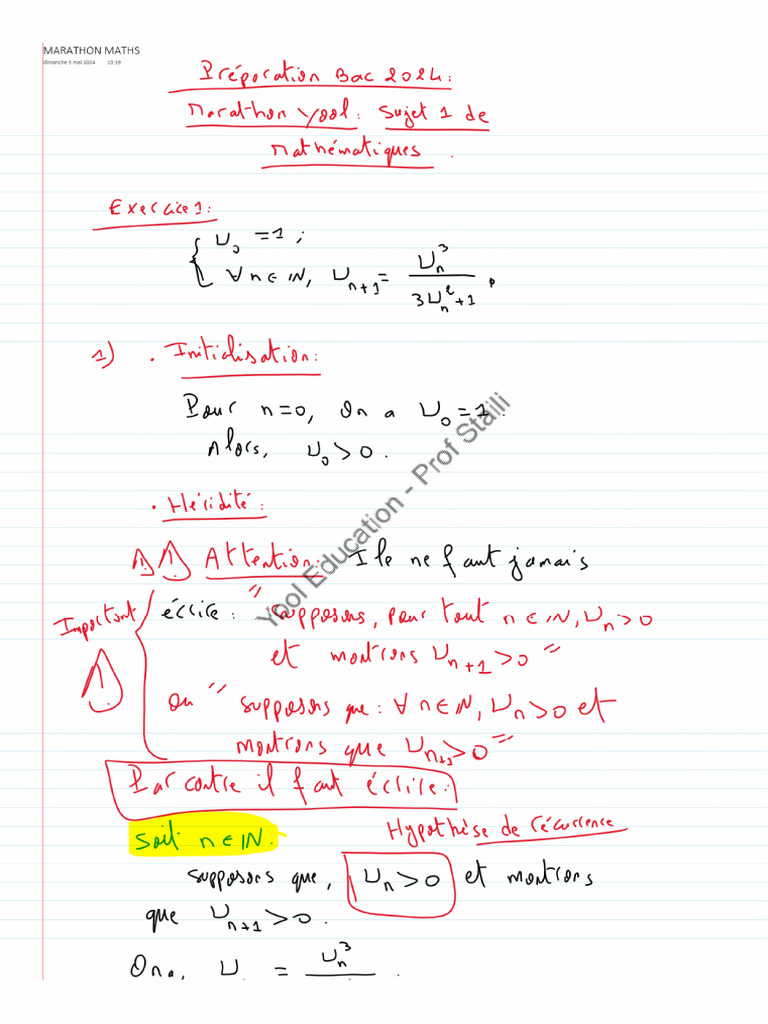 MARATHON MATHS
dimanche 5 mai 2024 13:19
Préparation Bac 2024:
Marathon Yool: Sujet 1 de
Mathématiques.
Exercice 1:
{ U_0 = 1 ;
∀ n ∈ IN, U_{n+1} = U_n^3 / (3U_n^2 + 1).
1) • Initialisation:
Pour n=0, On a U_0 = 1.
Alors, U_0 > 0.
• Héridité:
Attention: Il ne faut jamais
Important
écrire: "supposons, pour tout n ∈ IN, U_n > 0
et montrons U_{n+1} > 0"
ou "supposons que: ∀ n ∈ IN, U_n > 0 et
montrons que U_{n+1} > 0"
Par contre il faut écrire:
Soit n ∈ IN.
Hypothèse de récurrence
supposons que, U_n > 0 et montrons
que U_{n+1} > 0.
On a, U = U_n^3
Yool Education - Prof Staili